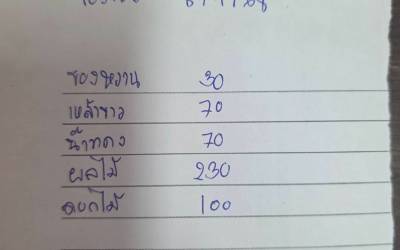 ของหวาน 30
เหล้าขาว 70
น้ำแดง 70
ผลไม้ 230
ดอกไม้ 100